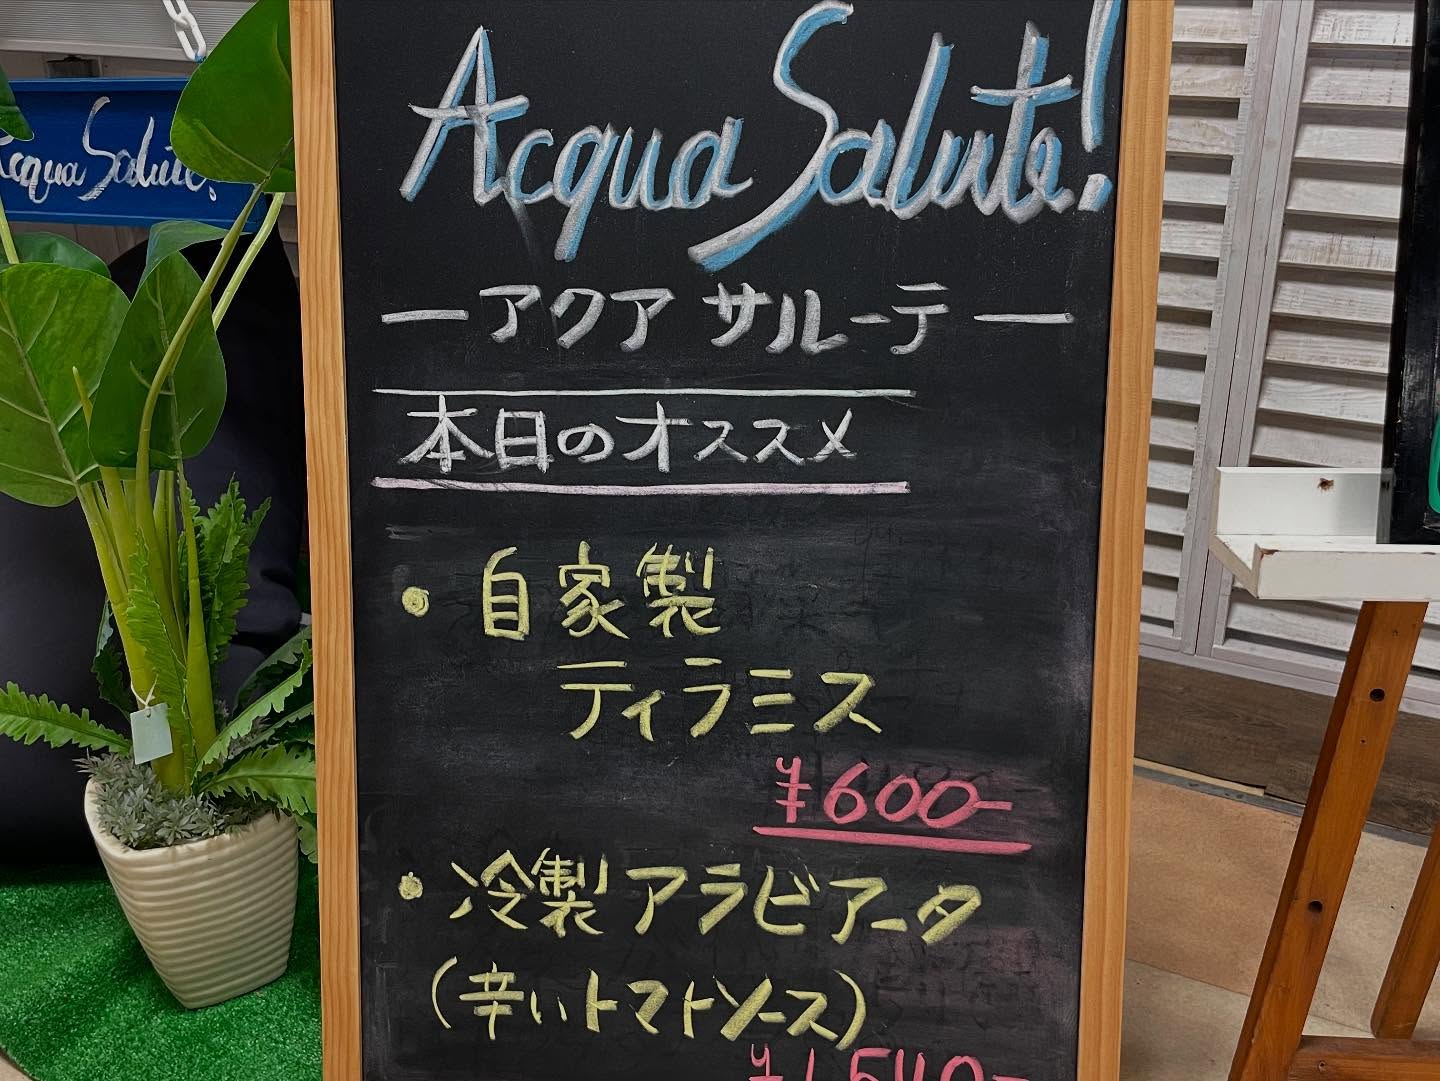 Acqua Salute!
Acqua Salute!
ー アクア サルーテ ー
本日のオススメ
・自家製
ティラミス
¥600-
・冷製アラビアータ
(辛いトマトソース)
¥1,540-